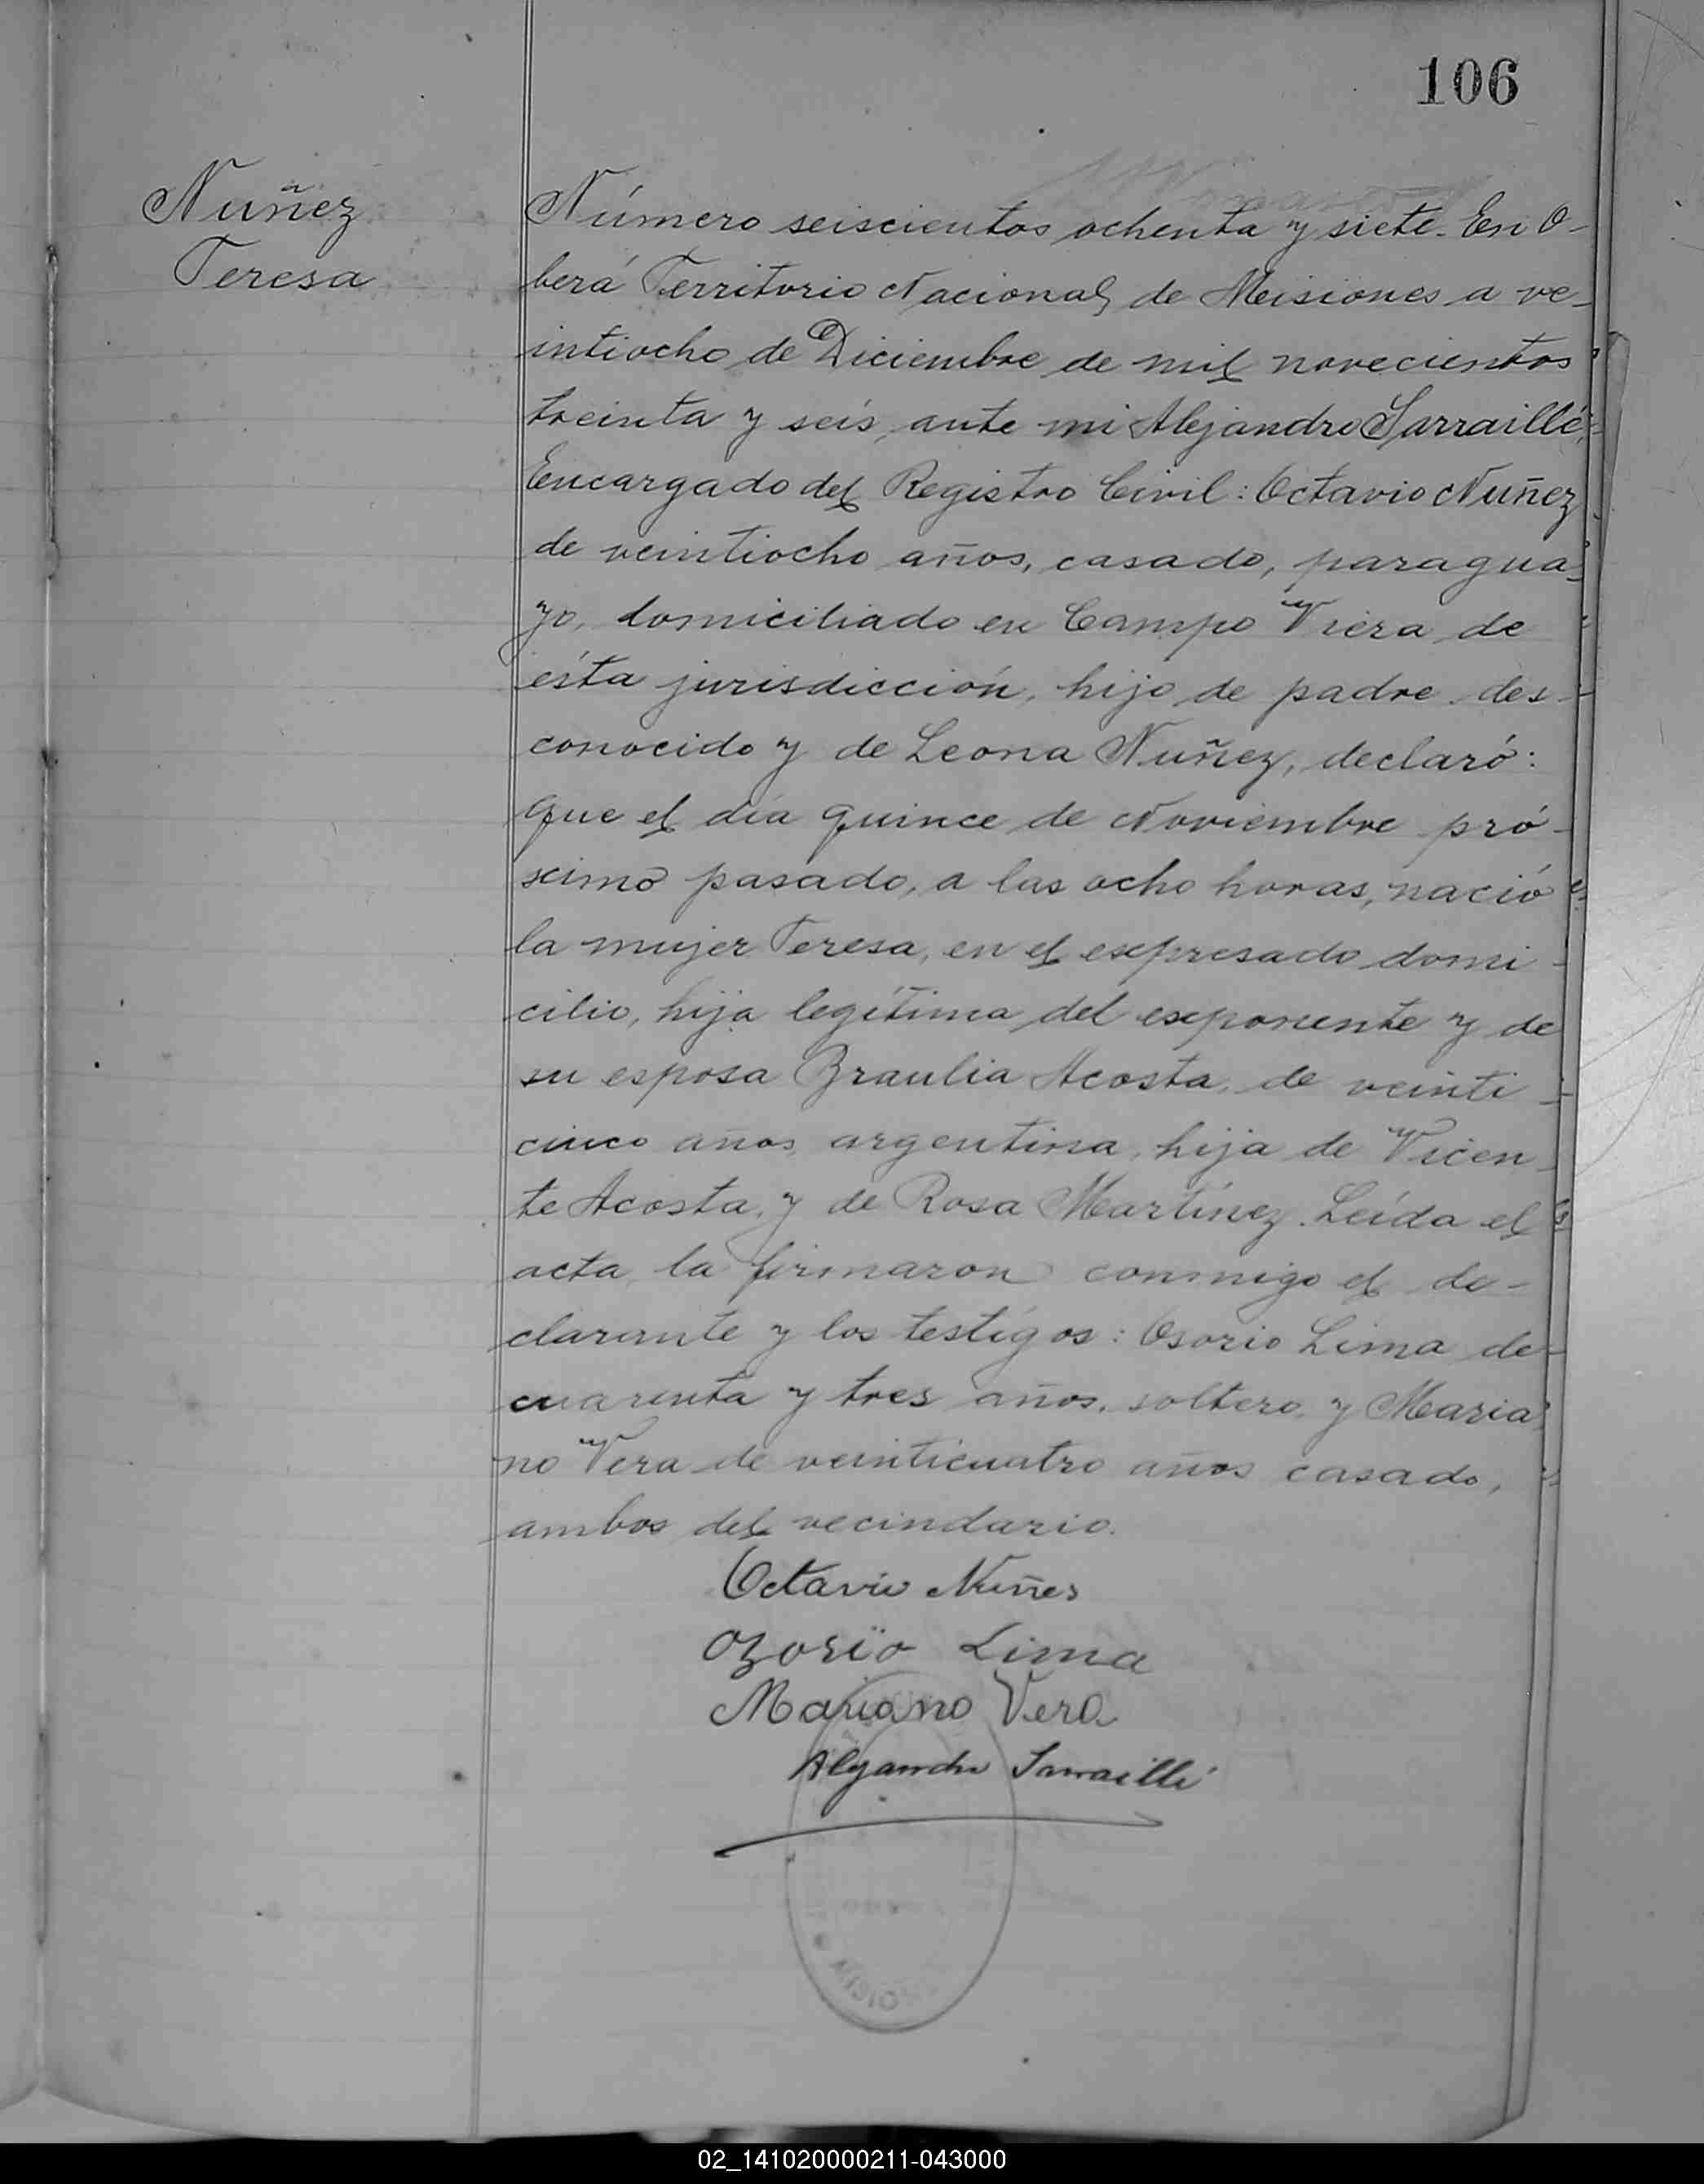 106
Nuñez
Teresa
Número seiscientos ochenta y siete. En O-
berá Territorio Nacional de Misiones a ve-
intiocho de Diciembre de mil novecientos
treinta y seis, ante mi Alejandro Sarraillé,
Encargado del Registro Civil: Octavio Nuñez
de veintiocho años, casado, paragua-
yo, domiciliado en Campo Viera de
ésta jurisdicción, hijo de padre des-
conocido y de Leona Nuñez, declaró:
Que el día quince de Noviembre pró-
ximo pasado, a las ocho horas, nació
la mujer Teresa, en el expresado domi-
cilio, hija legítima del exponente y de
su esposa Braulia Acosta, de veinti-
cinco años, argentina, hija de Vicen-
te Acosta, y de Rosa Martínez. Leída el
acta, la firmaron conmigo el de-
clarante y los testigos: Osorio Lima de
cuarenta y tres años, soltero, y Maria-
no Vera de veinticuatro años casado,
ambos del vecindario.
Octavio Nuñes
Ozorio Lima
Mariano Vera
Alejandro Sarraillé
02_141020000211-043000